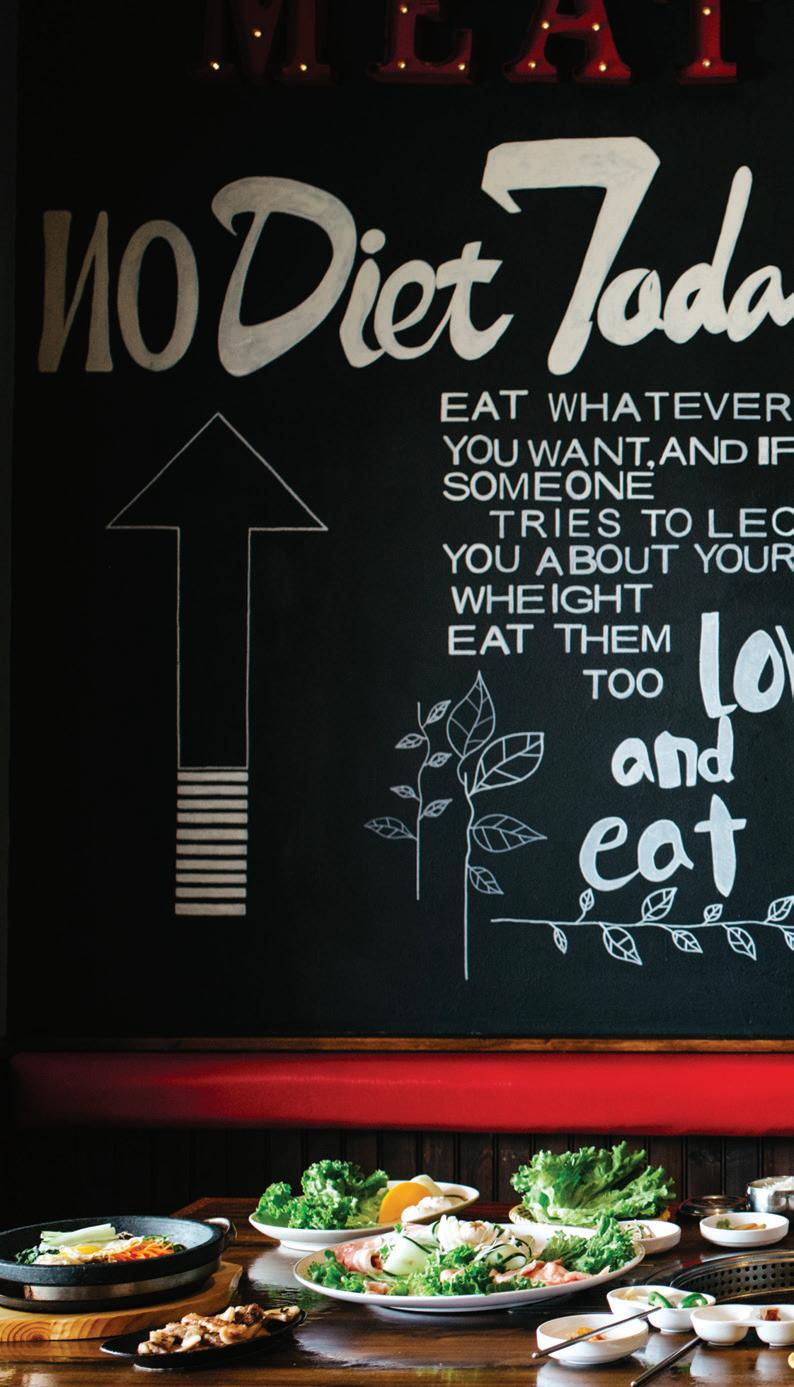 MEAT
NO Diet Toda
EAT WHATEVER
YOU WANT, AND IF
SOMEONE
TRIES TO LEC
YOU ABOUT YOUR
WHEIGHT
EAT THEM
TOO
LOV
and
eat